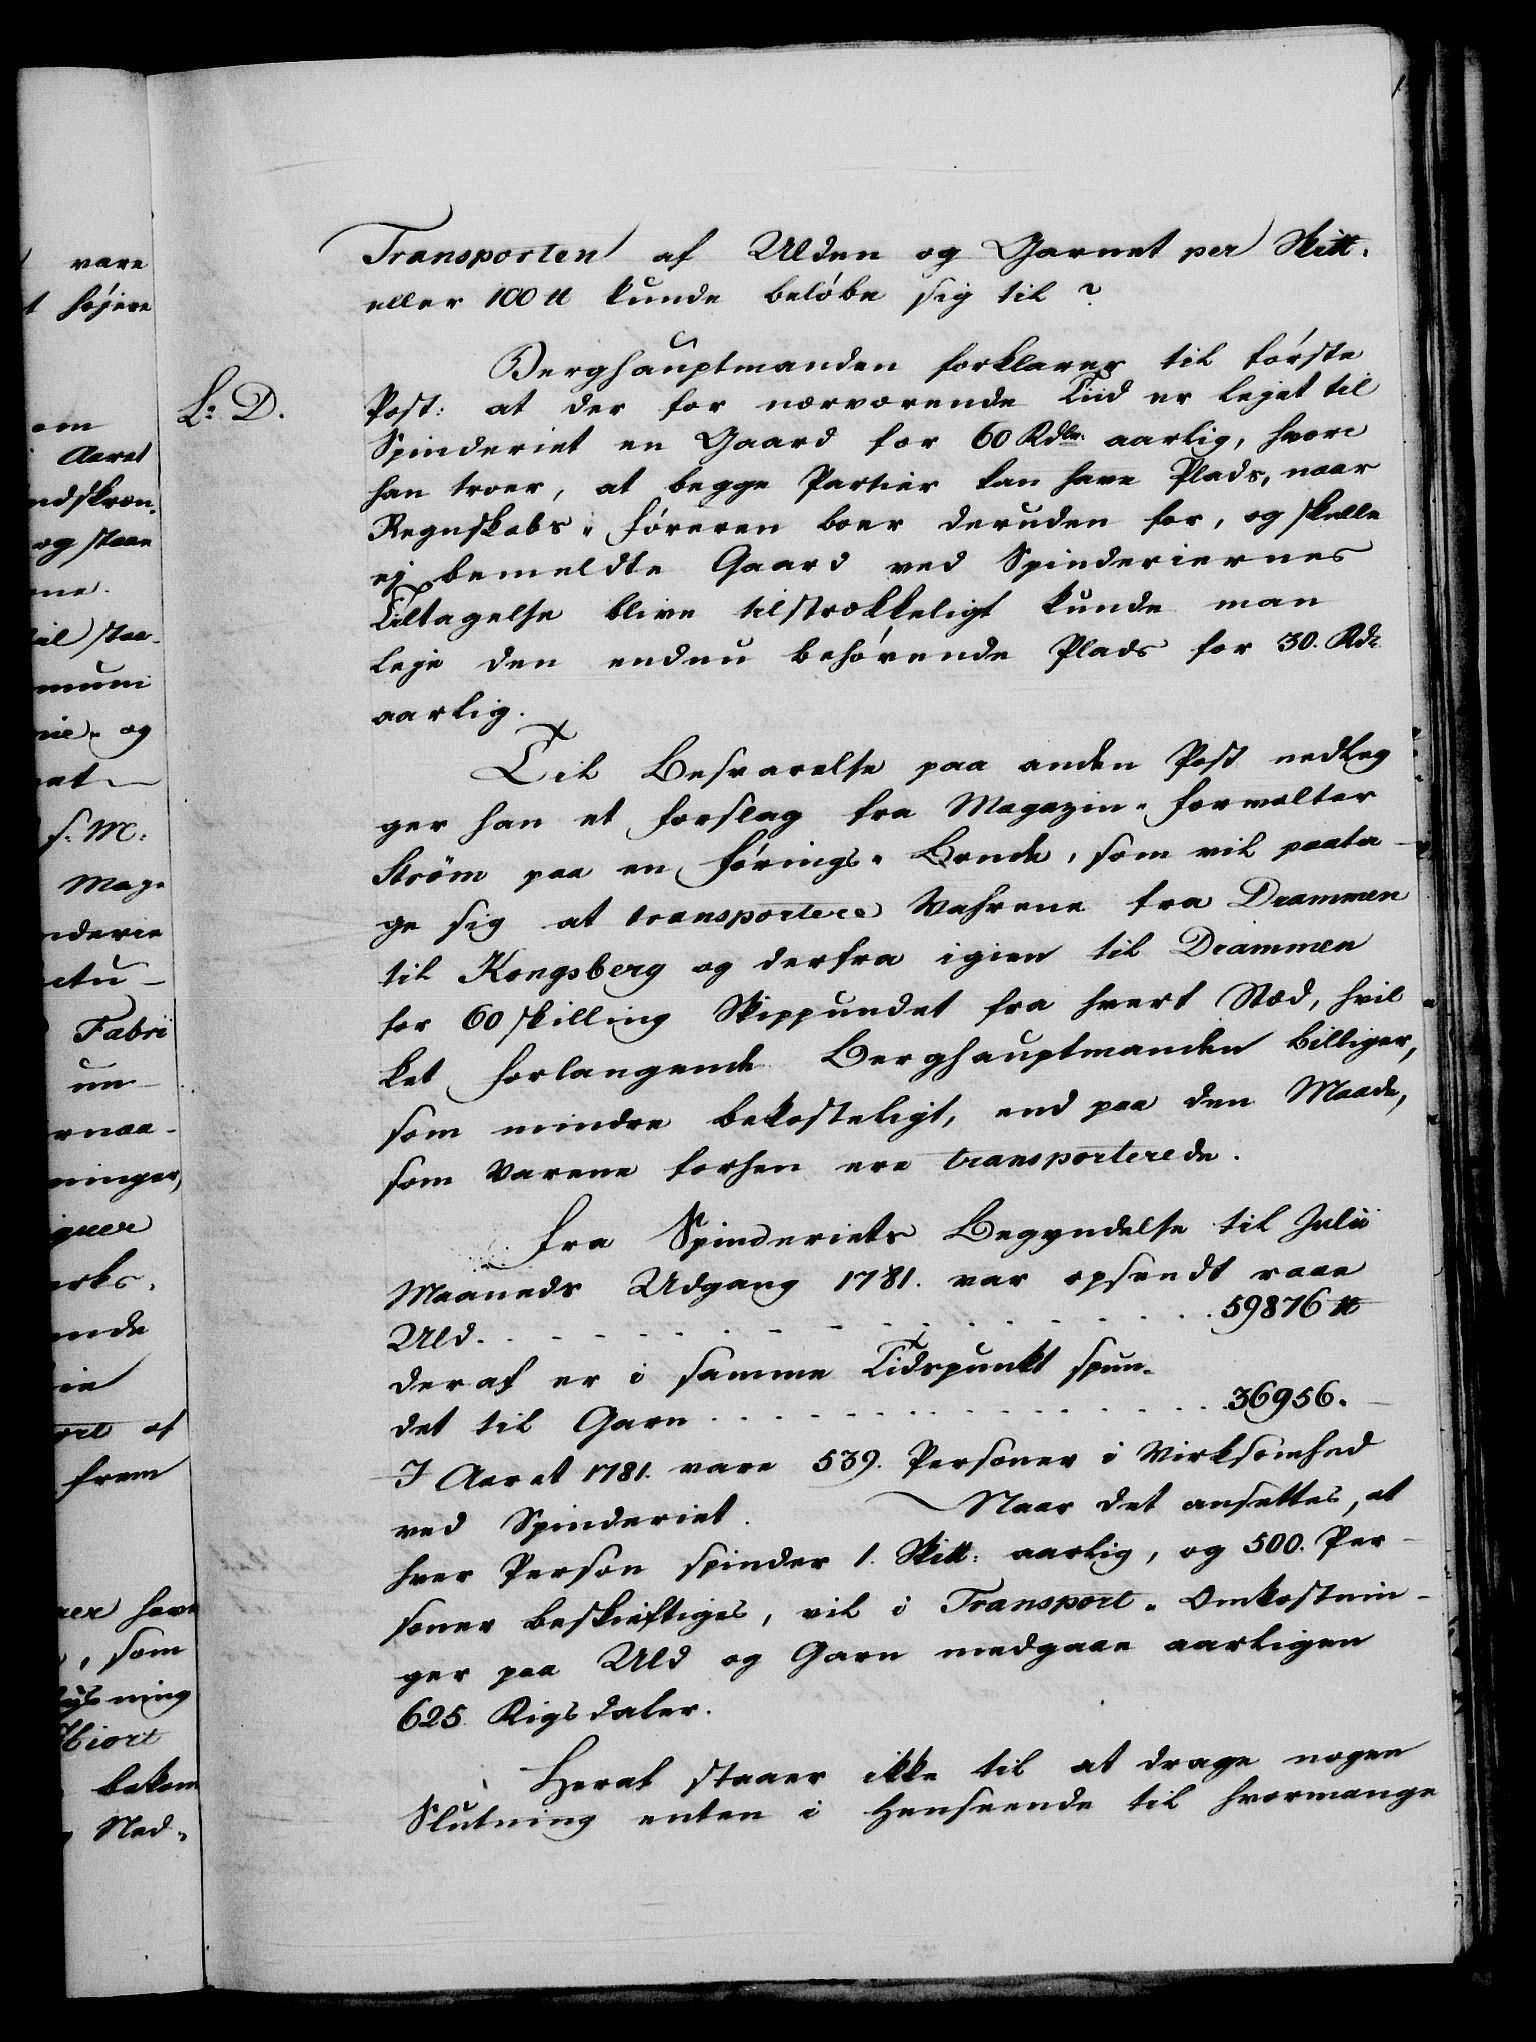 Transporten af Ulden og Garnet per Sk℔.
eller 100 ℔ kunde beløbe sig til?
Berghauptmanden forklarer til første
L: D.
Post: at der for nærværende Tiid er lejet til
Spinderiet en Gaard for 60 Rdlr. aarlig, hvori
han troer, at begge Partier kan have Plads, naar
Regnskabs-føreren boer deruden for, og skulle
ej bemeldte Gaard ved Spinderiernes
Tiltagelse blive tilstrækkeligt kunde man
leje den endnu behøvende Plads for 30. Rdr
aarlig.
Til Besvarelse paa anden Post nedleg
ger han et forslag fra Magazin-forvalter
Strøm paa en førings-Bonde, som vil paata-
ge sig at transportere Wahrene fra Drammen
til Kongsberg og derfra igien til Drammen
for 60 skilling Skippundet fra hvert Stæd, hvil
ket forlangende Berghauptmanden billiger,
som mindre bekosteligt, end paa den Maade,
som Varene forhen ere transporterede.
fra Spinderiets Begyndelse til Julii
Maaneds Udgang 1781. var opsendt raae
Uld. . . . . . . . . . . . . . . . . 59876 ℔
deraf er i samme Tidspunkt spun-
det til Garn . . . . . . . . . . . . . . 36956. -
I Aaret 1781. vare 539. Personer i Virksomhed
ved Spinderiet. Naar det ansettes, at
hver Person spinder 1. Sk℔: aarlig, og 500. Per-
soner beskieftiges, vil i Transport-Omkostnin-
ger paa Uld og Garn medgaae aarligen
625. Rigsdaler.
Heraf staaer ikke til at drage nogen
Slutning enten i Henseende til hvormange
vare
højere
Aaret
og staae
og
S: M:
Mag-
Fabri
un-
ninger,
ende
af
frem
som
Hiort
bekom
Ned-